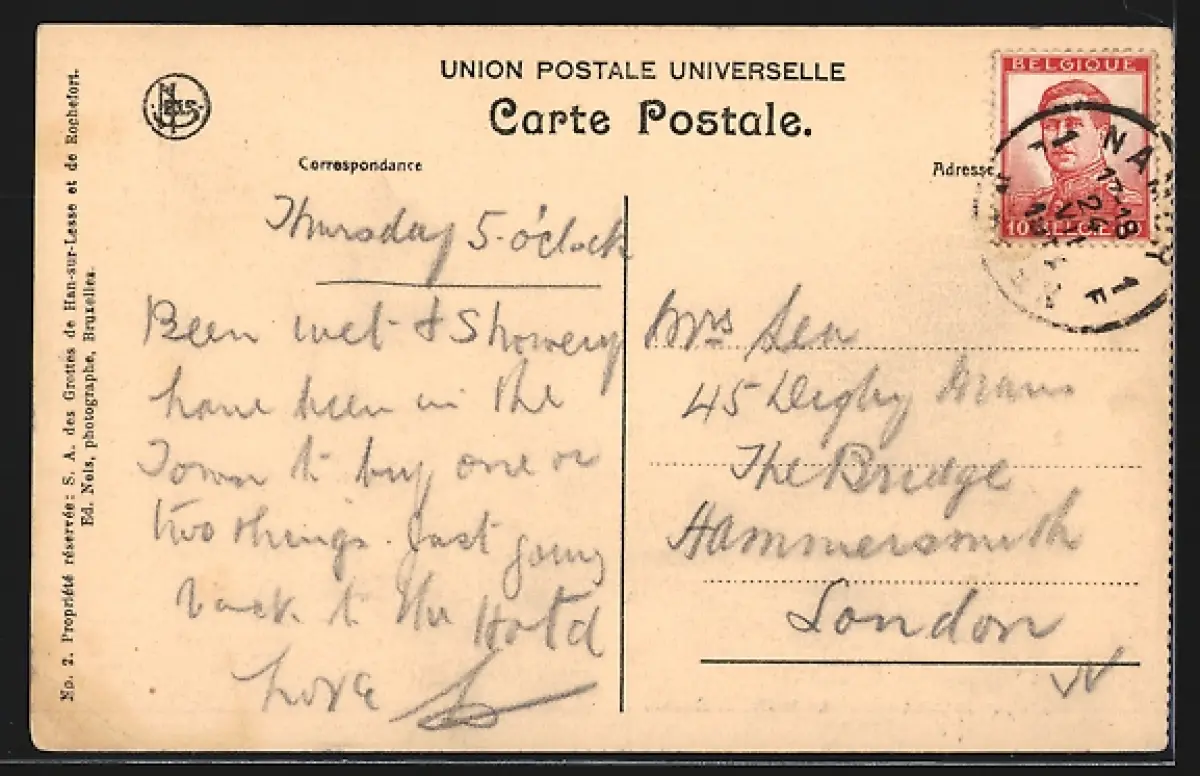 UNION POSTALE UNIVERSELLE
Carte Postale.
Correspondance
Adresse
Nels
BELGIQUE
10 BELGIË 10
NAMUR 1
17-18
24
VII
F
NAMEN
Thursday 5 o'clock
Been wet & Showery
have been in the
Town to buy one or
two things. Just going
back to the Hotel
Love
Mrs Lea
45 Digby Mans
The Bridge
Hammersmith
London
No. 2. Propriété réservée: S. A. des Grottes de Han-sur-Lesse et de Rochefort.
Ed. Nels, photographe, Bruxelles.